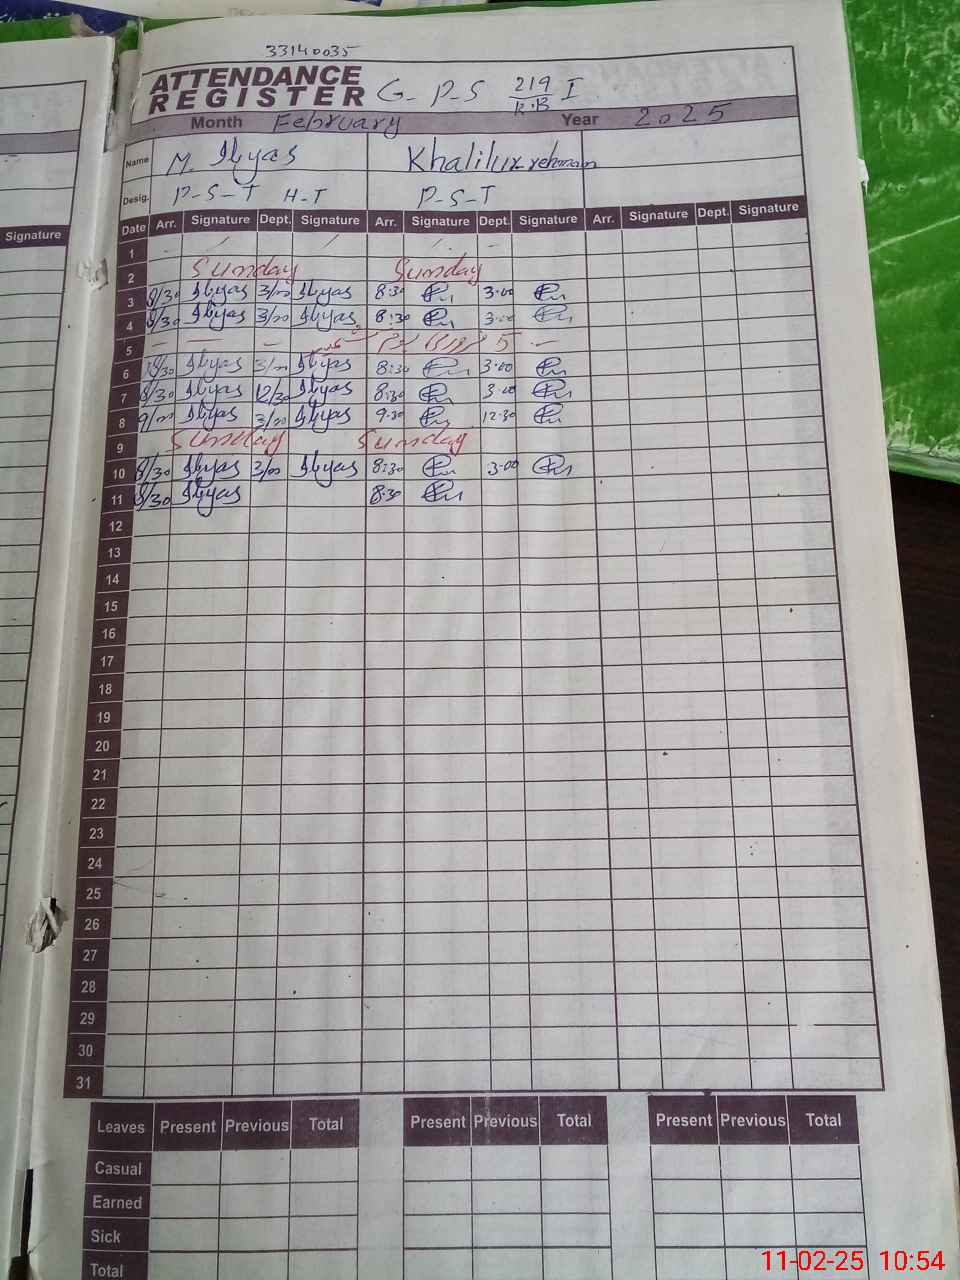 33140035
ATTENDANCE REGISTER G- P-S 219/R.B I
Month February Year 2025
Name M. Ilyas Khalilur rehman
Desig. P-S-T H-T P-S-T
Signature
Date Arr. Signature Dept. Signature Arr. Signature Dept. Signature Arr. Signature Dept. Signature
1 - - -
2 Sunday Sunday
3 8/30 Ilyas 3/00 Ilyas 8:30 3:00
4 8/30 Ilyas 3/00 Ilyas 8:30 3:00
5 - - - 5 -
6 8/30 Ilyas 3/00 Ilyas 8:30 3:00
7 8/30 Ilyas 12/30 Ilyas 8:30 3:00
8 9/00 Ilyas 3/00 Ilyas 9:30 12:30
9 Sunday Sunday
10 8/30 Ilyas 3/00 Ilyas 8:30 3:00
11 8/30 Ilyas 8:30
12
13
14
15
16
17
18
19
20
21
22
23
24
25
26
27
28
29
30
31
Leaves Present Previous Total Present Previous Total Present Previous Total
Casual
Earned
Sick
Total
11-02-25 10:54